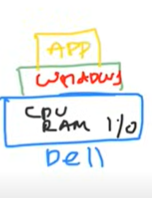 APP
WINDOWS
CPU
RAM I/O
Dell